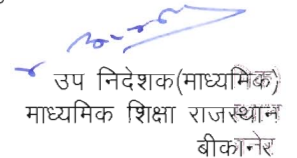 उप निदेशक(माध्यमिक)
माध्यमिक शिक्षा राजस्थान
बीकानेर